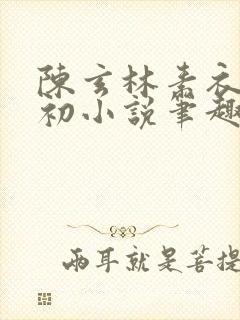 陳玄林素衣
初小說筆趣
兩耳就是菩提